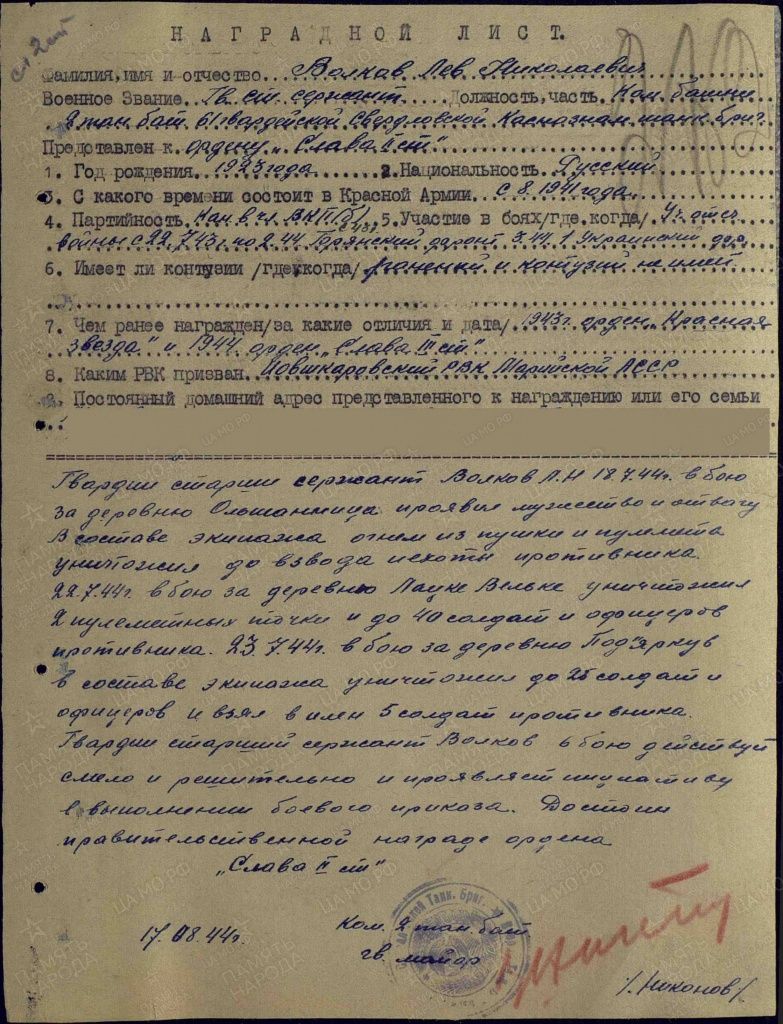 НАГРАДНОЙ ЛИСТ.
Фамилия, имя и отчество Волков Лев Николаевич
Военное Звание Гв. ст. сержант Должность, часть Ком. башни
2 тан. бат. 61 гвардейской Свердловской танк. бриг.
Представлен к ордену „Слава II ст"
1. Год рождения 1923 года 2. Национальность Русский
3. С какого времени состоит в Красной Армии с 8. 1941 года
4. Партийность Кан. в чл. ВКП/б/ 5. Участие в боях/где, когда/
войны с 22.7.43г. по 2.44 фронт 3.44 1 Украинский
6. Имеет ли контузии /где и когда/ ранений и контузий не имеет
7. Чем ранее награжден/за какие отличия и дата/ 1943г. орден „Красная
звезда" и 1944 орден „Слава III ст"
8. Каким РВК призван РВК Марийской АССР
9. Постоянный домашний адрес представленного к награждению или его семьи
Гвардии старши сержант Волков Л.Н 18.7.44г. в бою
за деревню Ольшанница проявил мужество и отвагу
В составе экипажа огнем из пушки и пулемета
уничтожил до взвода пехоты противника.
22.7.44г. в бою за деревню Лацке Вельке уничтожил
2 пулеметных точки и до 40 солдат и офицеров
противника. 23.7.44г. в бою за деревню Под'яркув
в составе экипажа уничтожил до 25 солдат и
офицеров и взял в плен 5 солдат противника.
Гвардии старший сержант Волков в бою действует
смело и решительно и проявляет инициативу
в выполнении боевого приказа. Достоин
правительственной награде ордена
„Слава II ст"
17.08.44г.
Ком. 2 тан. бат
гв. майор
/Никонов/